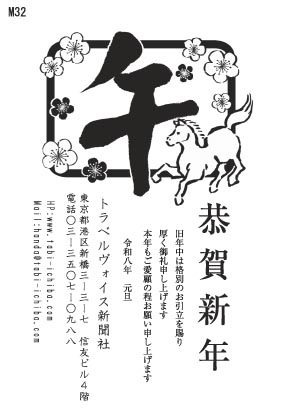 M32
午
恭賀新年
旧年中は格別のお引立を賜り
厚く御礼申し上げます
本年もご愛顧の程お願い申し上げます
令和八年 元旦
トラベルヴォイス新聞社
東京都港区新橋三―三―七 信友ビル4階
電話〇三―三五〇七―〇九八八
HP:www.tabi-ichiba.com
Mail:handa@tabi-ichiba.com